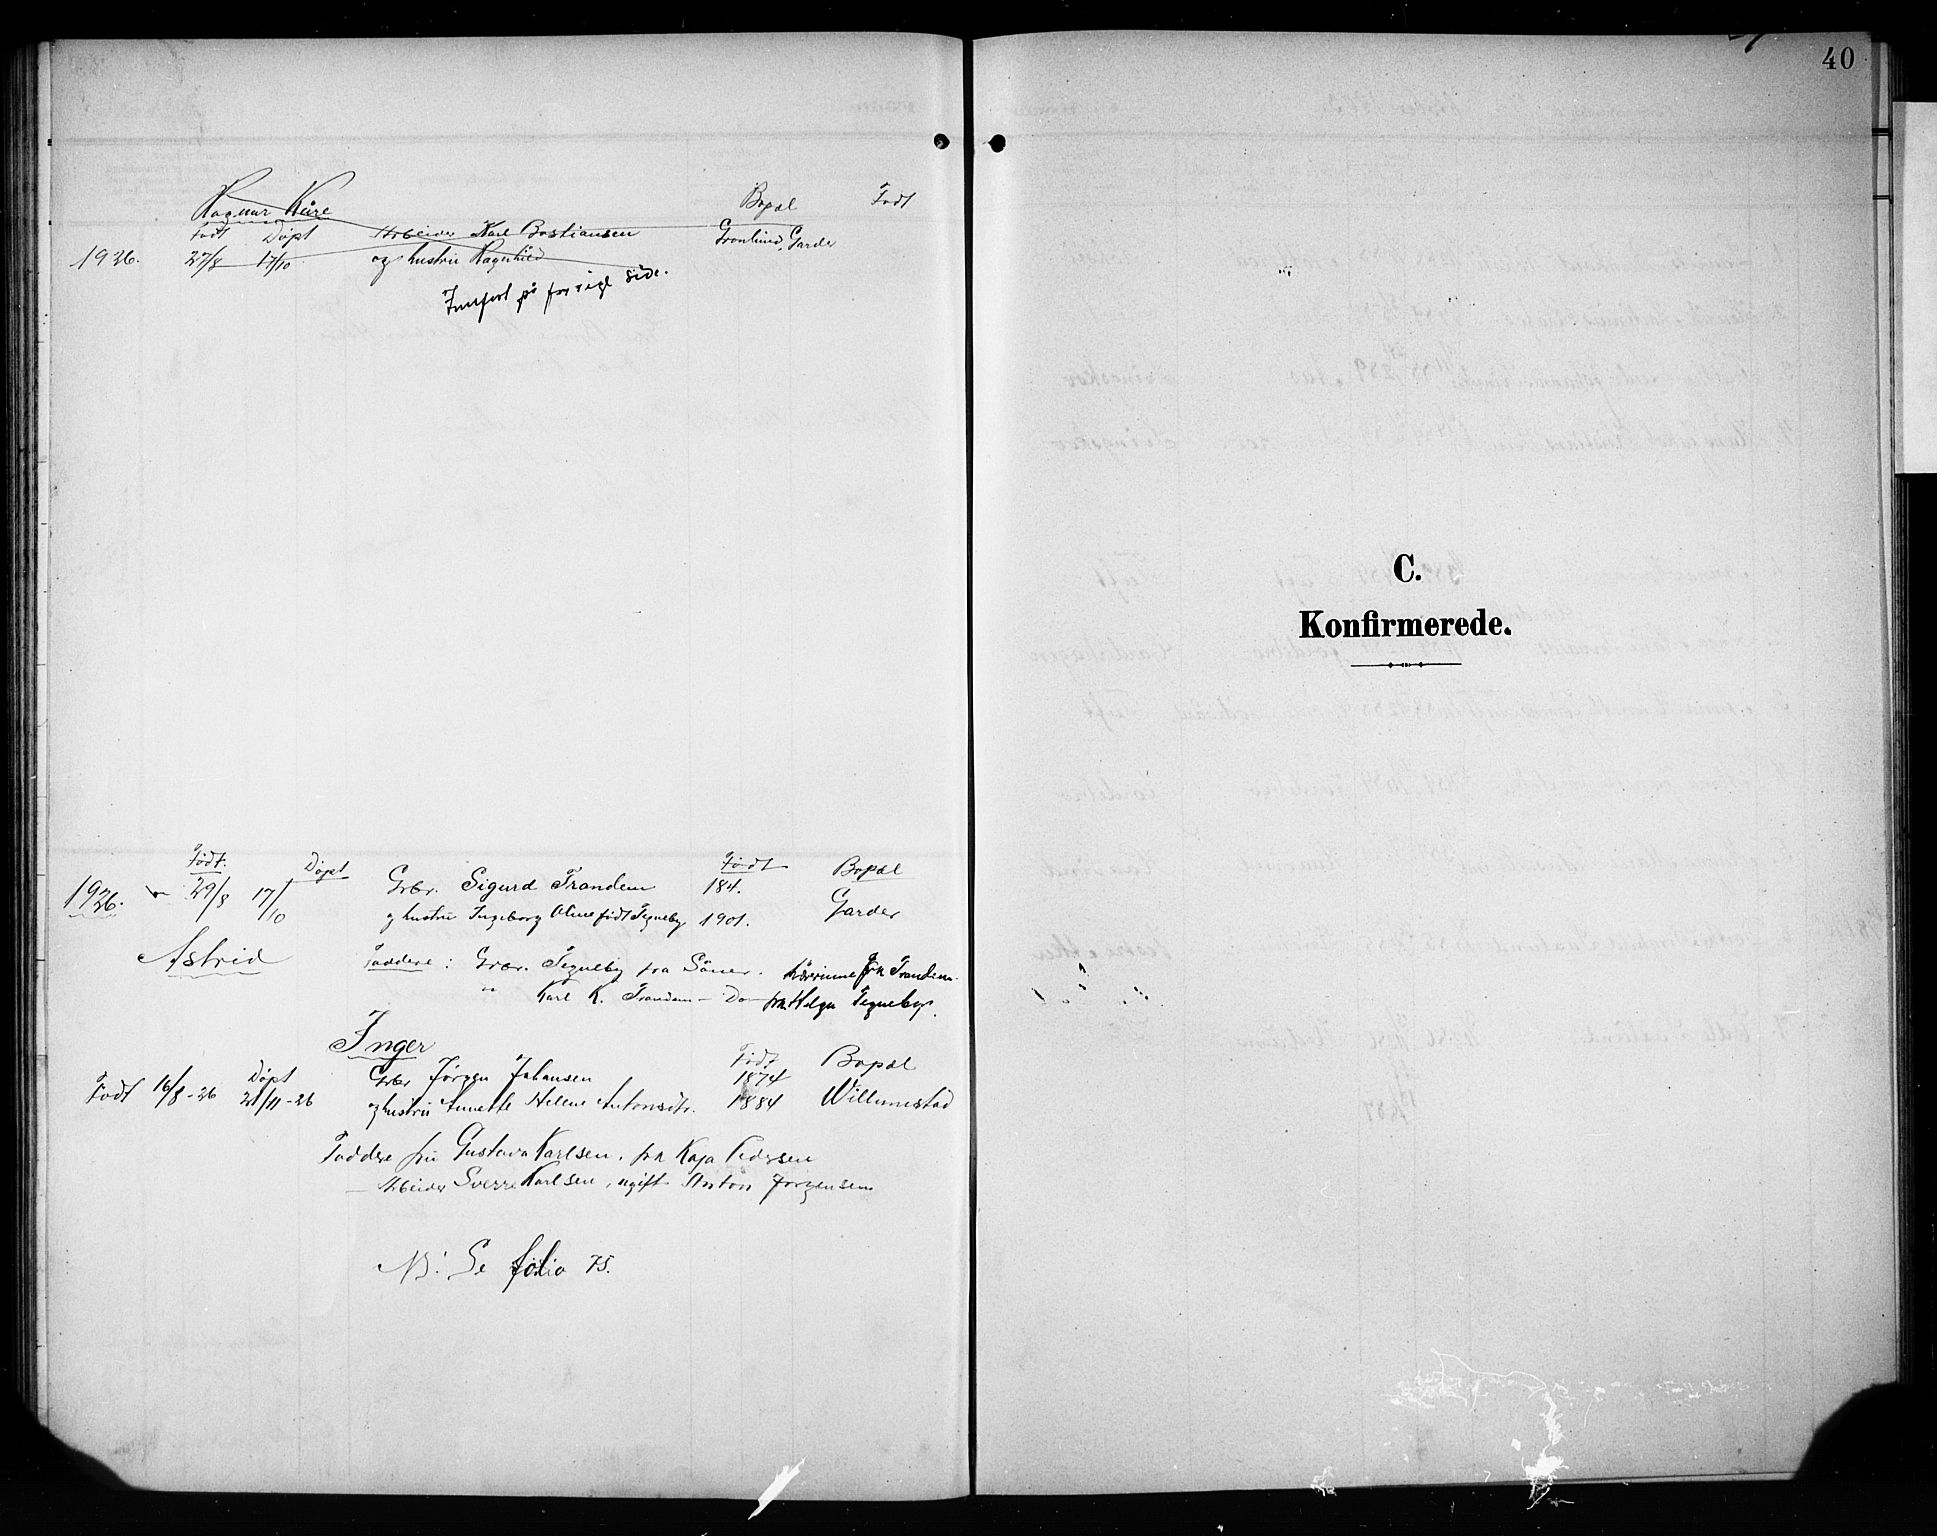 Ragnar Kåre
Bopæl Født
Født Døpt Arbeider Karl Bastiansen Grønlund, Garder
1926. 27/8 17/10 og hustru Ragnhild
Innført på forrige side.
Født. Døpt Født Bopæl
1926. 29/8 17/10 Grbr. Sigurd Trandem 184.
og hustru Ingeborg Oline født Tegneby 1901. Garder
Astrid Faddere: Grbr. Tegneby fra Såner. Lærerinne frk Trandem.
" Karl K. Trandem – Do frk. Helga Tegneby.
Inger
Født Bopæl
Døpt Grbr Jørgen Johansen 1874
Født 16/8-26 21/11-26 og hustru Annette Helene Antonsdtr. 1884 Willumstad
Faddere fru Gustava Karlsen, frk Kaja Pedersen
– Arbeider Sverre Karlsen, ugift Anton Jørgensen
NB: Se folio 75.
40
C.
Konfirmerede.